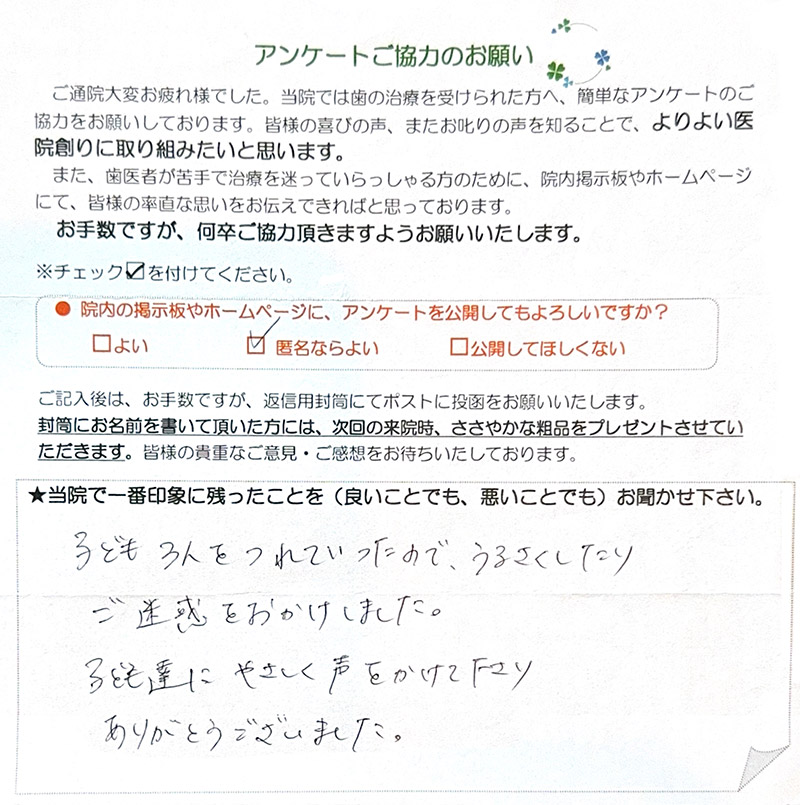 アンケートご協力のお願い
ご通院大変お疲れ様でした。当院では歯の治療を受けられた方へ、簡単なアンケートのご
協力をお願いしております。皆様の喜びの声、またお叱りの声を知ることで、よりよい医
院創りに取り組みたいと思います。
また、歯医者が苦手で治療を迷っていらっしゃる方のために、院内掲示板やホームページ
にて、皆様の率直な思いをお伝えできればと思っております。
お手数ですが、何卒ご協力頂きますようお願いいたします。
※チェック☑を付けてください。
● 院内の掲示板やホームページに、アンケートを公開してもよろしいですか？
□よい ☑ 匿名ならよい □公開してほしくない
ご記入後は、お手数ですが、返信用封筒にてポストに投函をお願いいたします。
封筒にお名前を書いて頂いた方には、次回の来院時、ささやかな粗品をプレゼントさせてい
ただきます。皆様の貴重なご意見・ご感想をお待ちいたしております。
★当院で一番印象に残ったことを（良いことでも、悪いことでも）お聞かせ下さい。
子ども3人をつれていったので、うるさくしたり
ご迷惑をおかけしました。
子ども達にやさしく声をかけて下さり
ありがとうございました。